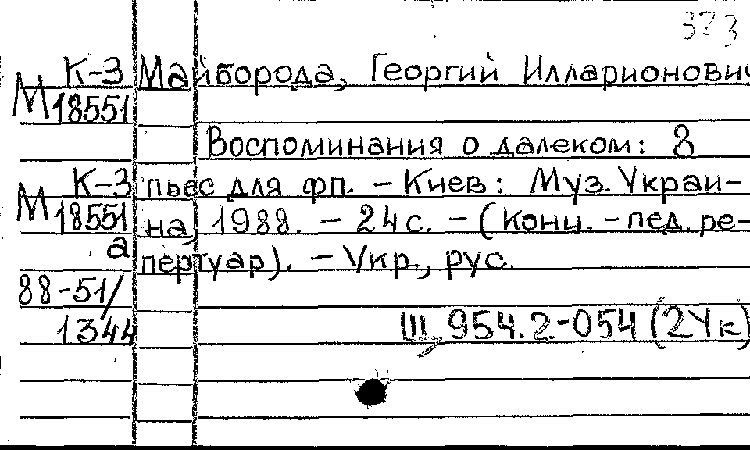 373
К-3 Майборода, Георгий Илларионович
М 18551
Воспоминания о далеком: 8
К-3 пьес для фп. - Киев: Муз. Украи-
М 18551 на, 1988. - 24 с. - (Конц. - пед. ре-
а пертуар). - Укр., рус.
88-51/
1344 Щ 954.2-054 (2Ук)